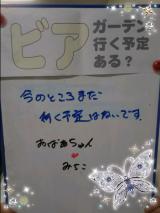 ビア
ガーデン
行く予定
ある?
今のところまだ
行く予定はないです。
おばあちゃん
みよこ